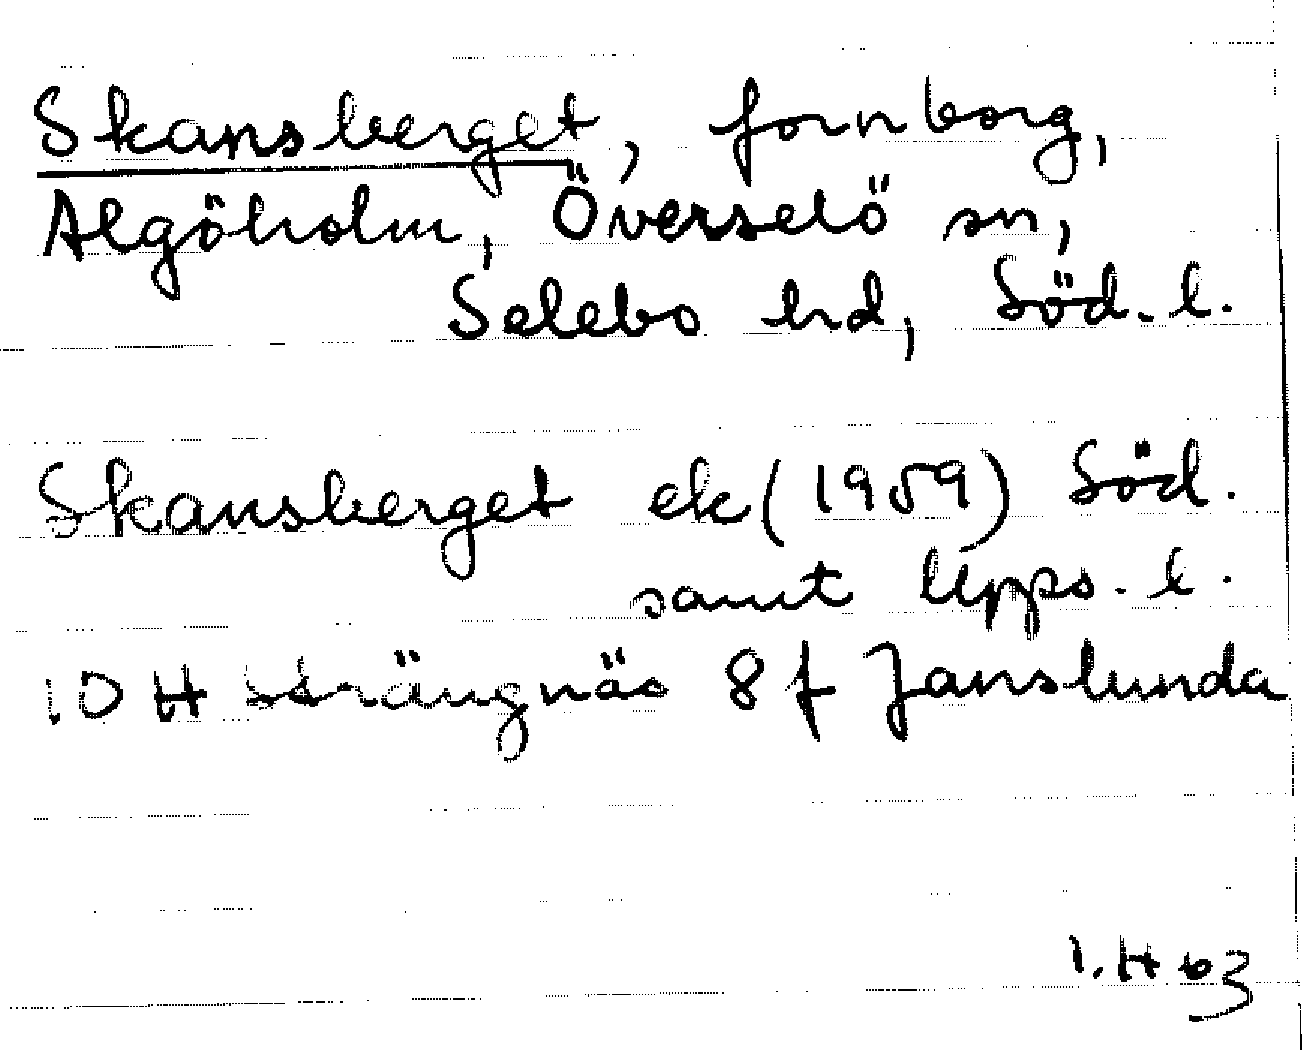 Skansberget, fornborg,
Algöholm, Överselö sn,
Selebo hd, Söd. l.
Skansberget ek (1959) Söd.
samt Upps. l.
10 H Strängnäs 8 f Janslunda
I. H 63